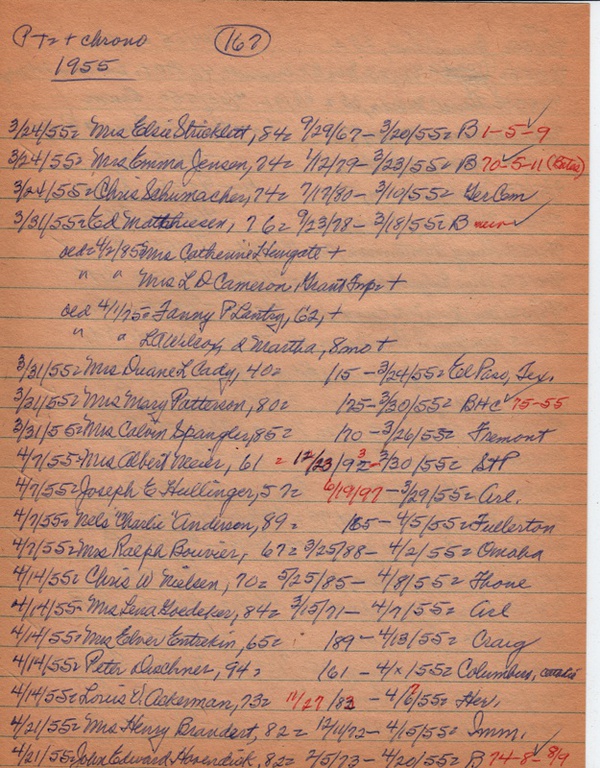 P T2 + chrono 167
1955
3/24/55= Mrs Elsie Stricklett, 84= 9/29/67 - 3/20/55= B 1-5-9
3/24/55= Mrs Emma Jensen, 74= 1/12/79 - 3/23/55= B 70-5-11 (Betas)
3/24/55= Chris Schumacher, 74= 7/17/80 - 3/10/55= Ger Cem
3/31/55= Ed Matthiesen, 76= 9/23/78 - 3/18/55= B
oed= 4/2/85= Mrs Catherine Hungate +
" " Mrs L D Cameron Grant Imp= +
oed 4/1/75= Fanny P Lantry, 62, +
" " LA Wilcox d Martha, 8 mo +
3/31/55= Mrs Duane L Cady, 40= /15 - 3/24/55= El Paso, Tex.
3/31/55= Mrs Mary Patterson, 80= /75 - 3/30/55= B+C 75-55
3/31/55= Mrs Calvin Spangler, 85= /70 - 3/26/55= Fremont
4/7/55= Mrs Albert Meier, 61 = 12/23/93 - 3/30/55= StP
4/7/55= Joseph E Hullinger, 57= 6/19/97 - 3/29/55= Arl.
4/7/55= Nels "Charlie" Anderson, 89= /65 - 4/5/55= Fullerton
4/7/55= Mrs Ralph Bouvier, 67= 3/25/88 - 4/2/55= Omaha
4/14/55= Chris W Nielsen, 70= 5/25/85 - 4/8/55= Thone
4/14/55= Mrs Lena Goedeker, 84= 3/15/71 - 4/7/55= Arl
4/14/55= Mrs Elver Entrekin, 65= /89 - 4/13/55= Craig
4/14/55= Peter Dischner, 94= /61 - 4/x/55= Columbus,
4/14/55= Louis V. Ackerman, 73= 11/27/83 - 4/6/55= Her.
4/21/55= Mrs Henry Brandert, 82= 12/11/72 - 4/15/55= Imm.
4/21/55= John Edward Havendick, 82= 2/5/73 - 4/20/55= B 74-8-8/9